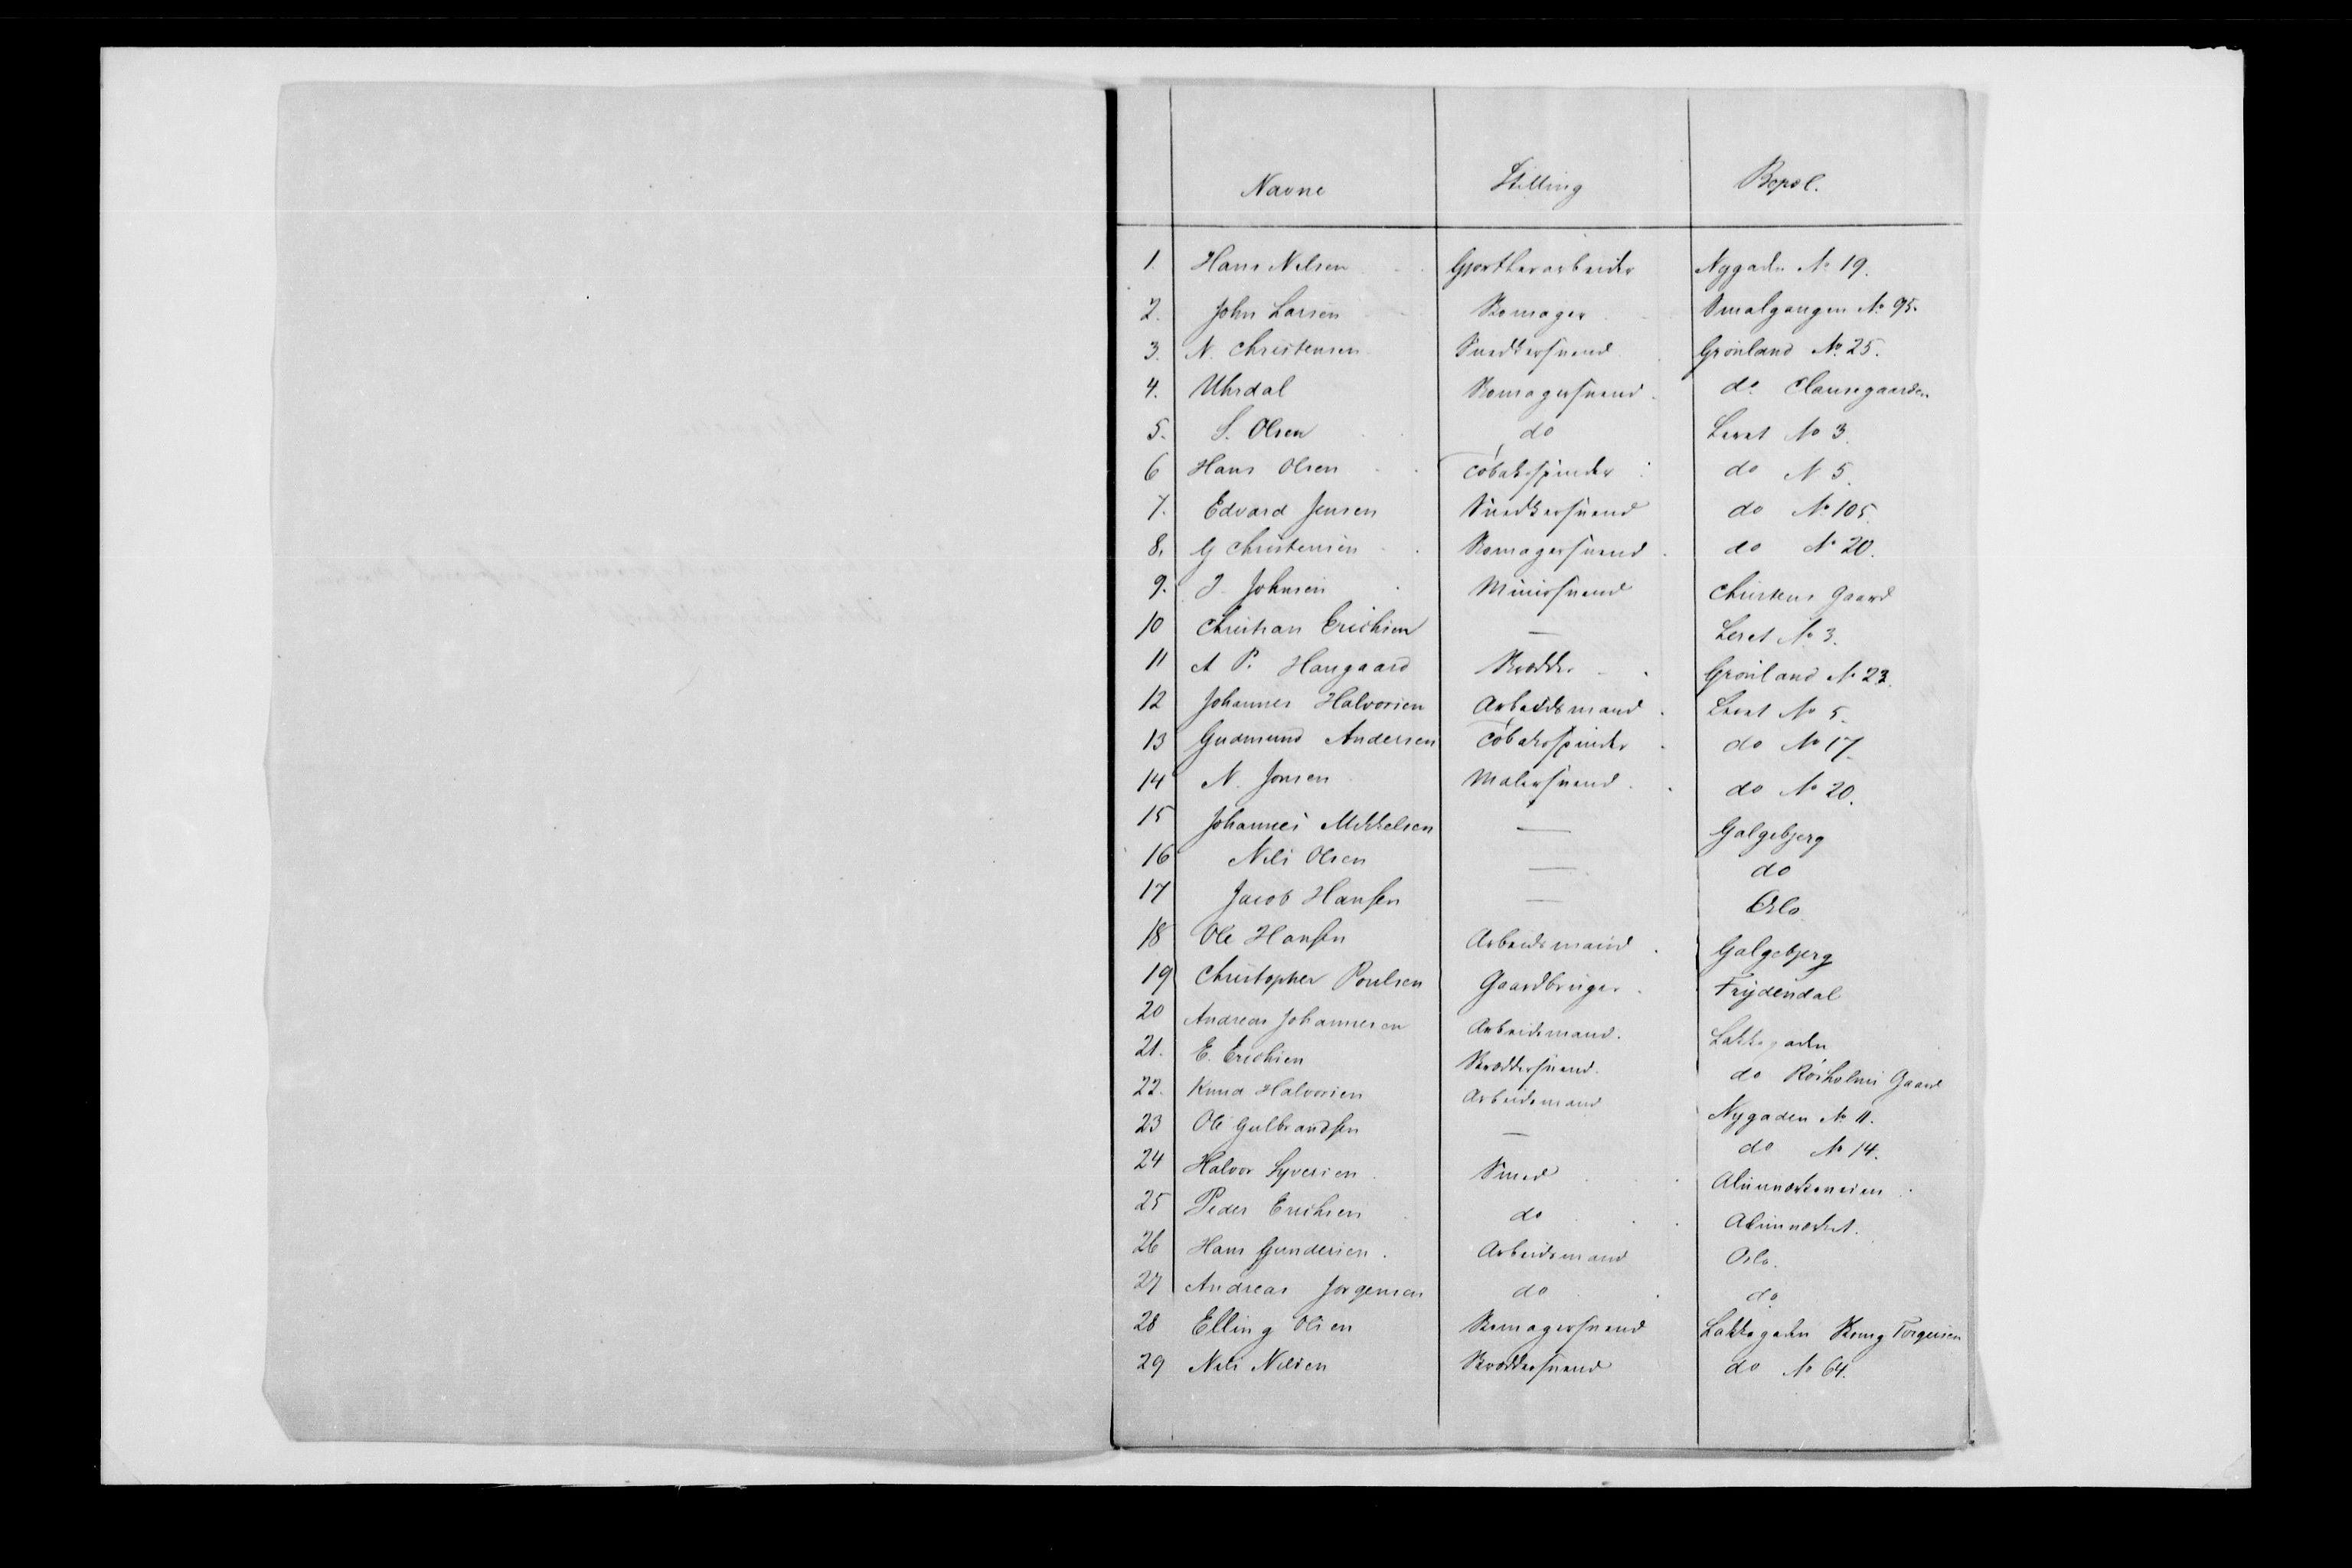 Navne Stilling Bopæl.
1. Hans Nilsen Gjørtlerarbeider Nygaden No 19.
2. John Larsen Skomager Smalgangen No 95.
3. N. Christensen Snedkersvend Grønland No 25.
4. Uhrdal Skomagersvend do Clausegaarden
5. S. Olsen do Leret No 3.
6 Hans Olsen Tobakspinder do N 5.
7. Edvard Jensen Snedkersvend do No 105.
8. G Christensen Skomagersvend do No 20.
9. J. Johnsen Murersvend Christens Gaard
10 Christian Erichsen — Leret No 3.
11 A P. Haugaard Skrædder Grønland No 23.
12 Johannes Halvorsen Arbeidsmand Leret No 5.
13 Gudmund Andersen Tobakspinder do No 17
14 N. Jonsen Malersvend do No 20.
15 Johannes Mikkelsen — Galgebjerg
16 Nils Olsen — do
17 Jacob Hansen — Oslo
18 Ole Hansen Arbeidsmand Galgebjerg
19 Christopher Poulsen Gaardbruger Frydendal
20 Andreas Johannesen Arbeidsmand. Lakkegaden
21. E. Erichsen Skræddersvend. do Röiholms Gaard
22. Knud Halvorsen Arbeidsmand Nygaden No 11.
23 Ole Gulbrandsen — do No 14.
24 Halvor Syversen Smed
25 Peder Erichsen do
26 Hans Gundersen. Arbeidsmand Oslo.
27 Andreas Jorgensen do do
28 Elling Olsen Skomagersvend Lakkegaden Torgersen
29 Nils Nilsen Skræddersvend do No 64.